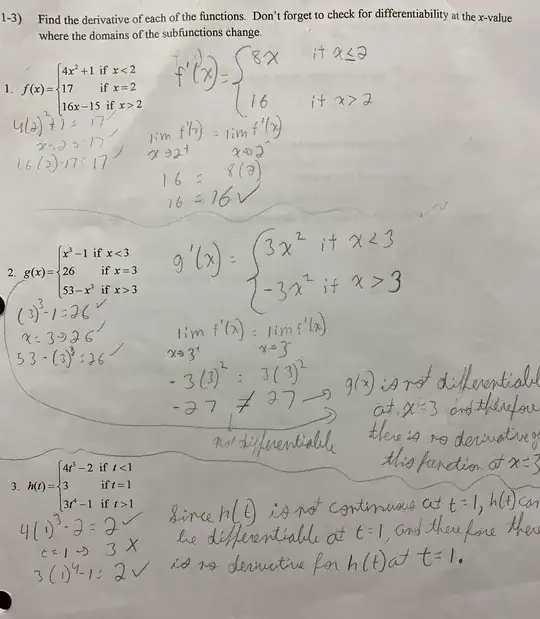 1-3) Find the derivative of each of the functions. Don't forget to check for differentiability at the x-value
where the domains of the subfunctions change.
1. f(x) = { 4x² + 1 if x < 2
17 if x = 2
16x − 15 if x > 2
f'(x) = { 8x if x ≤ 2
16 if x > 2
4(2)² + 1 = 17 ✓
x = 2 → 17 ✓
16(2) - 17 = 17 ✓
lim f'(x) = lim f'(x)
x→2⁺ x→2⁻
16 = 8(2)
16 = 16 ✓
2. g(x) = { x³ − 1 if x < 3
26 if x = 3
53 − x³ if x > 3
g'(x) = { 3x² if x < 3
-3x² if x > 3
(3)³ - 1 = 26 ✓
x = 3 → 26 ✓
53 - (3)³ = 26 ✓
lim f'(x) = lim f'(x)
x→3⁺ x→3⁻
- 3(3)² = 3(3)²
- 27 ≠ 27 →
not differentiable
g(x) is not differentiabl
at x = 3 and therefore
there is no derivative of
this function at x = 3
3. h(t) = { 4t³ − 2 if t < 1
3 if t = 1
3t⁴ − 1 if t > 1
4(1)³ - 2 = 2 ✓
t = 1 → 3 X
3(1)⁴ - 1 = 2 ✓
Since h(t) is not continuous at t = 1, h(t) can
be differentiable at t = 1, and therefore there
is no derivative for h(t) at t = 1.